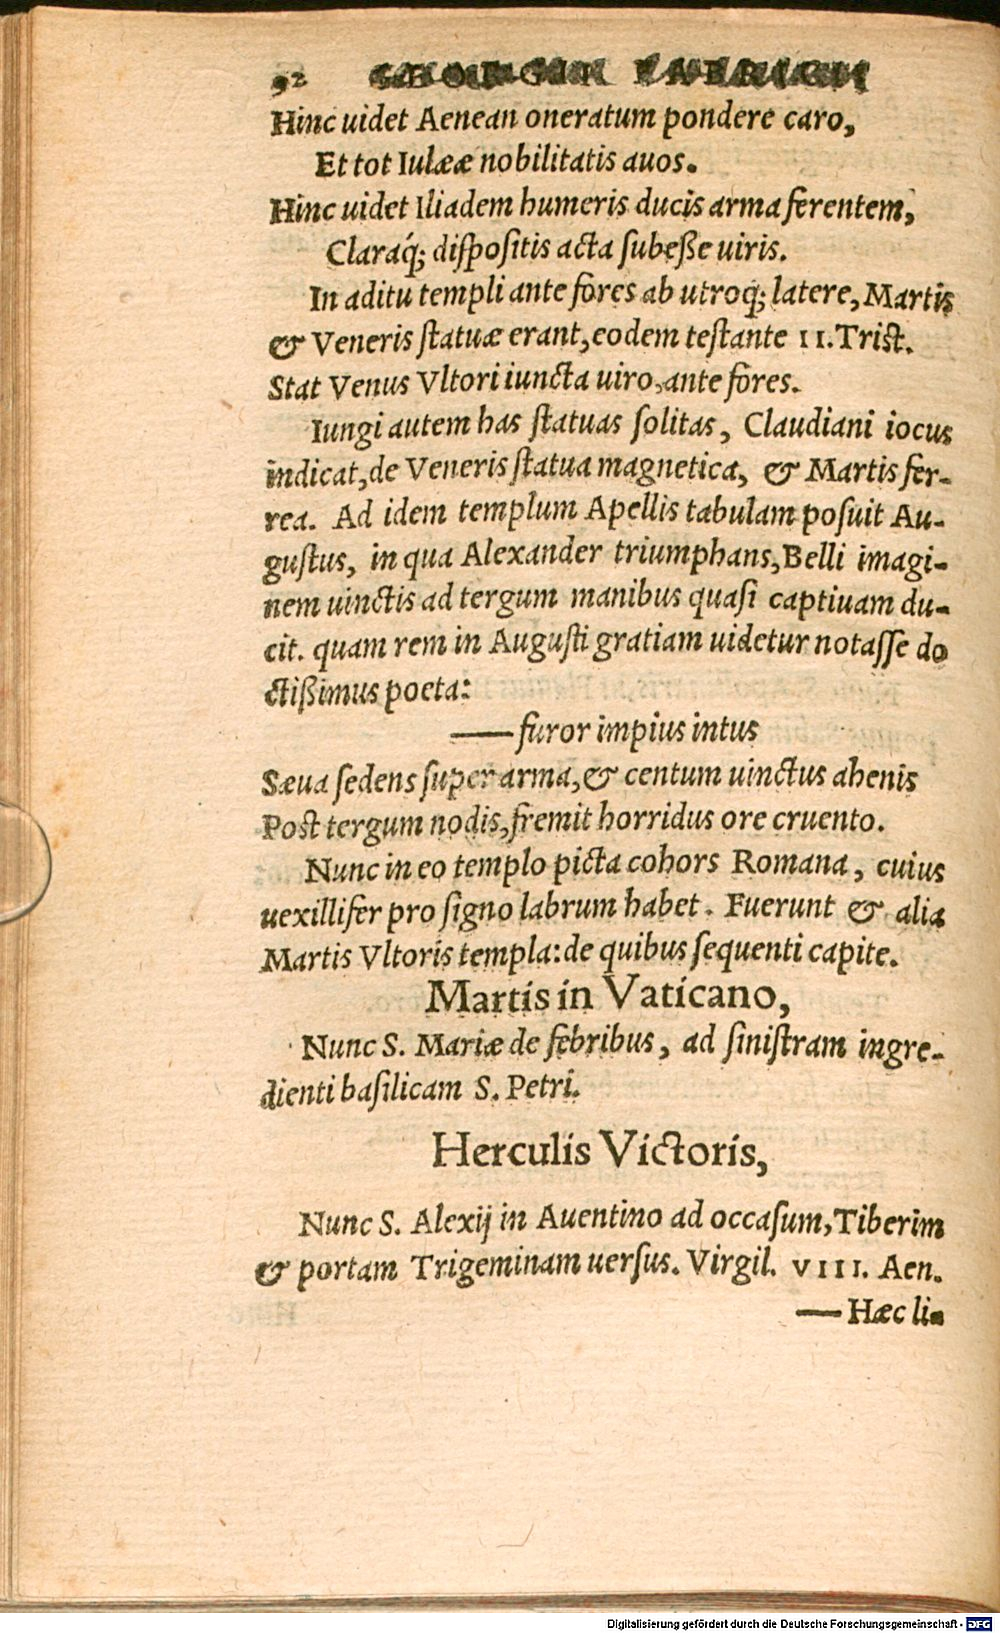 92 GEORGII FABRICII
Hinc uidet Aenean oneratum pondere caro,
Et tot Iulææ nobilitatis auos.
Hinc uidet Iliadem humeris ducis arma ferentem,
Claraq́; diſpoſitis acta ſubeſſe uiris.
In aditu templi ante fores ab utroq; latere, Martis
& Veneris ſtatuæ erant, eodem teſtante II. Triſt.
Stat Venus Vltori iuncta uiro, ante fores.
Iungi autem has ſtatuas ſolitas, Claudiani iocus
indicat, de Veneris ſtatua magnetica, & Martis fer-
rea. Ad idem templum Apellis tabulam poſuit Au-
guſtus, in qua Alexander triumphans, Belli imagi-
nem uinctis ad tergum manibus quaſi captiuam du-
cit. quam rem in Auguſti gratiam uidetur notaſſe do
ctißimus poeta:
—furor impius intus
Sæua ſedens ſuper arma, & centum uinctus ahenis
Poſt tergum nodis, fremit horridus ore cruento.
Nunc in eo templo picta cohors Romana, cuius
uexillifer pro ſigno labrum habet. Fuerunt & alia
Martis Vltoris templa: de quibus ſequenti capite.
Martis in Vaticano,
Nunc S. Mariæ de febribus, ad ſiniſtram ingre-
dienti baſilicam S. Petri.
Herculis Victoris,
Nunc S. Alexij in Auentino ad occaſum, Tiberim
& portam Trigeminam uerſus. Virgil. VIII. Aen.
—Hæc li-
Digitalisierung gefördert durch die Deutsche Forschungsgemeinschaft - DFG